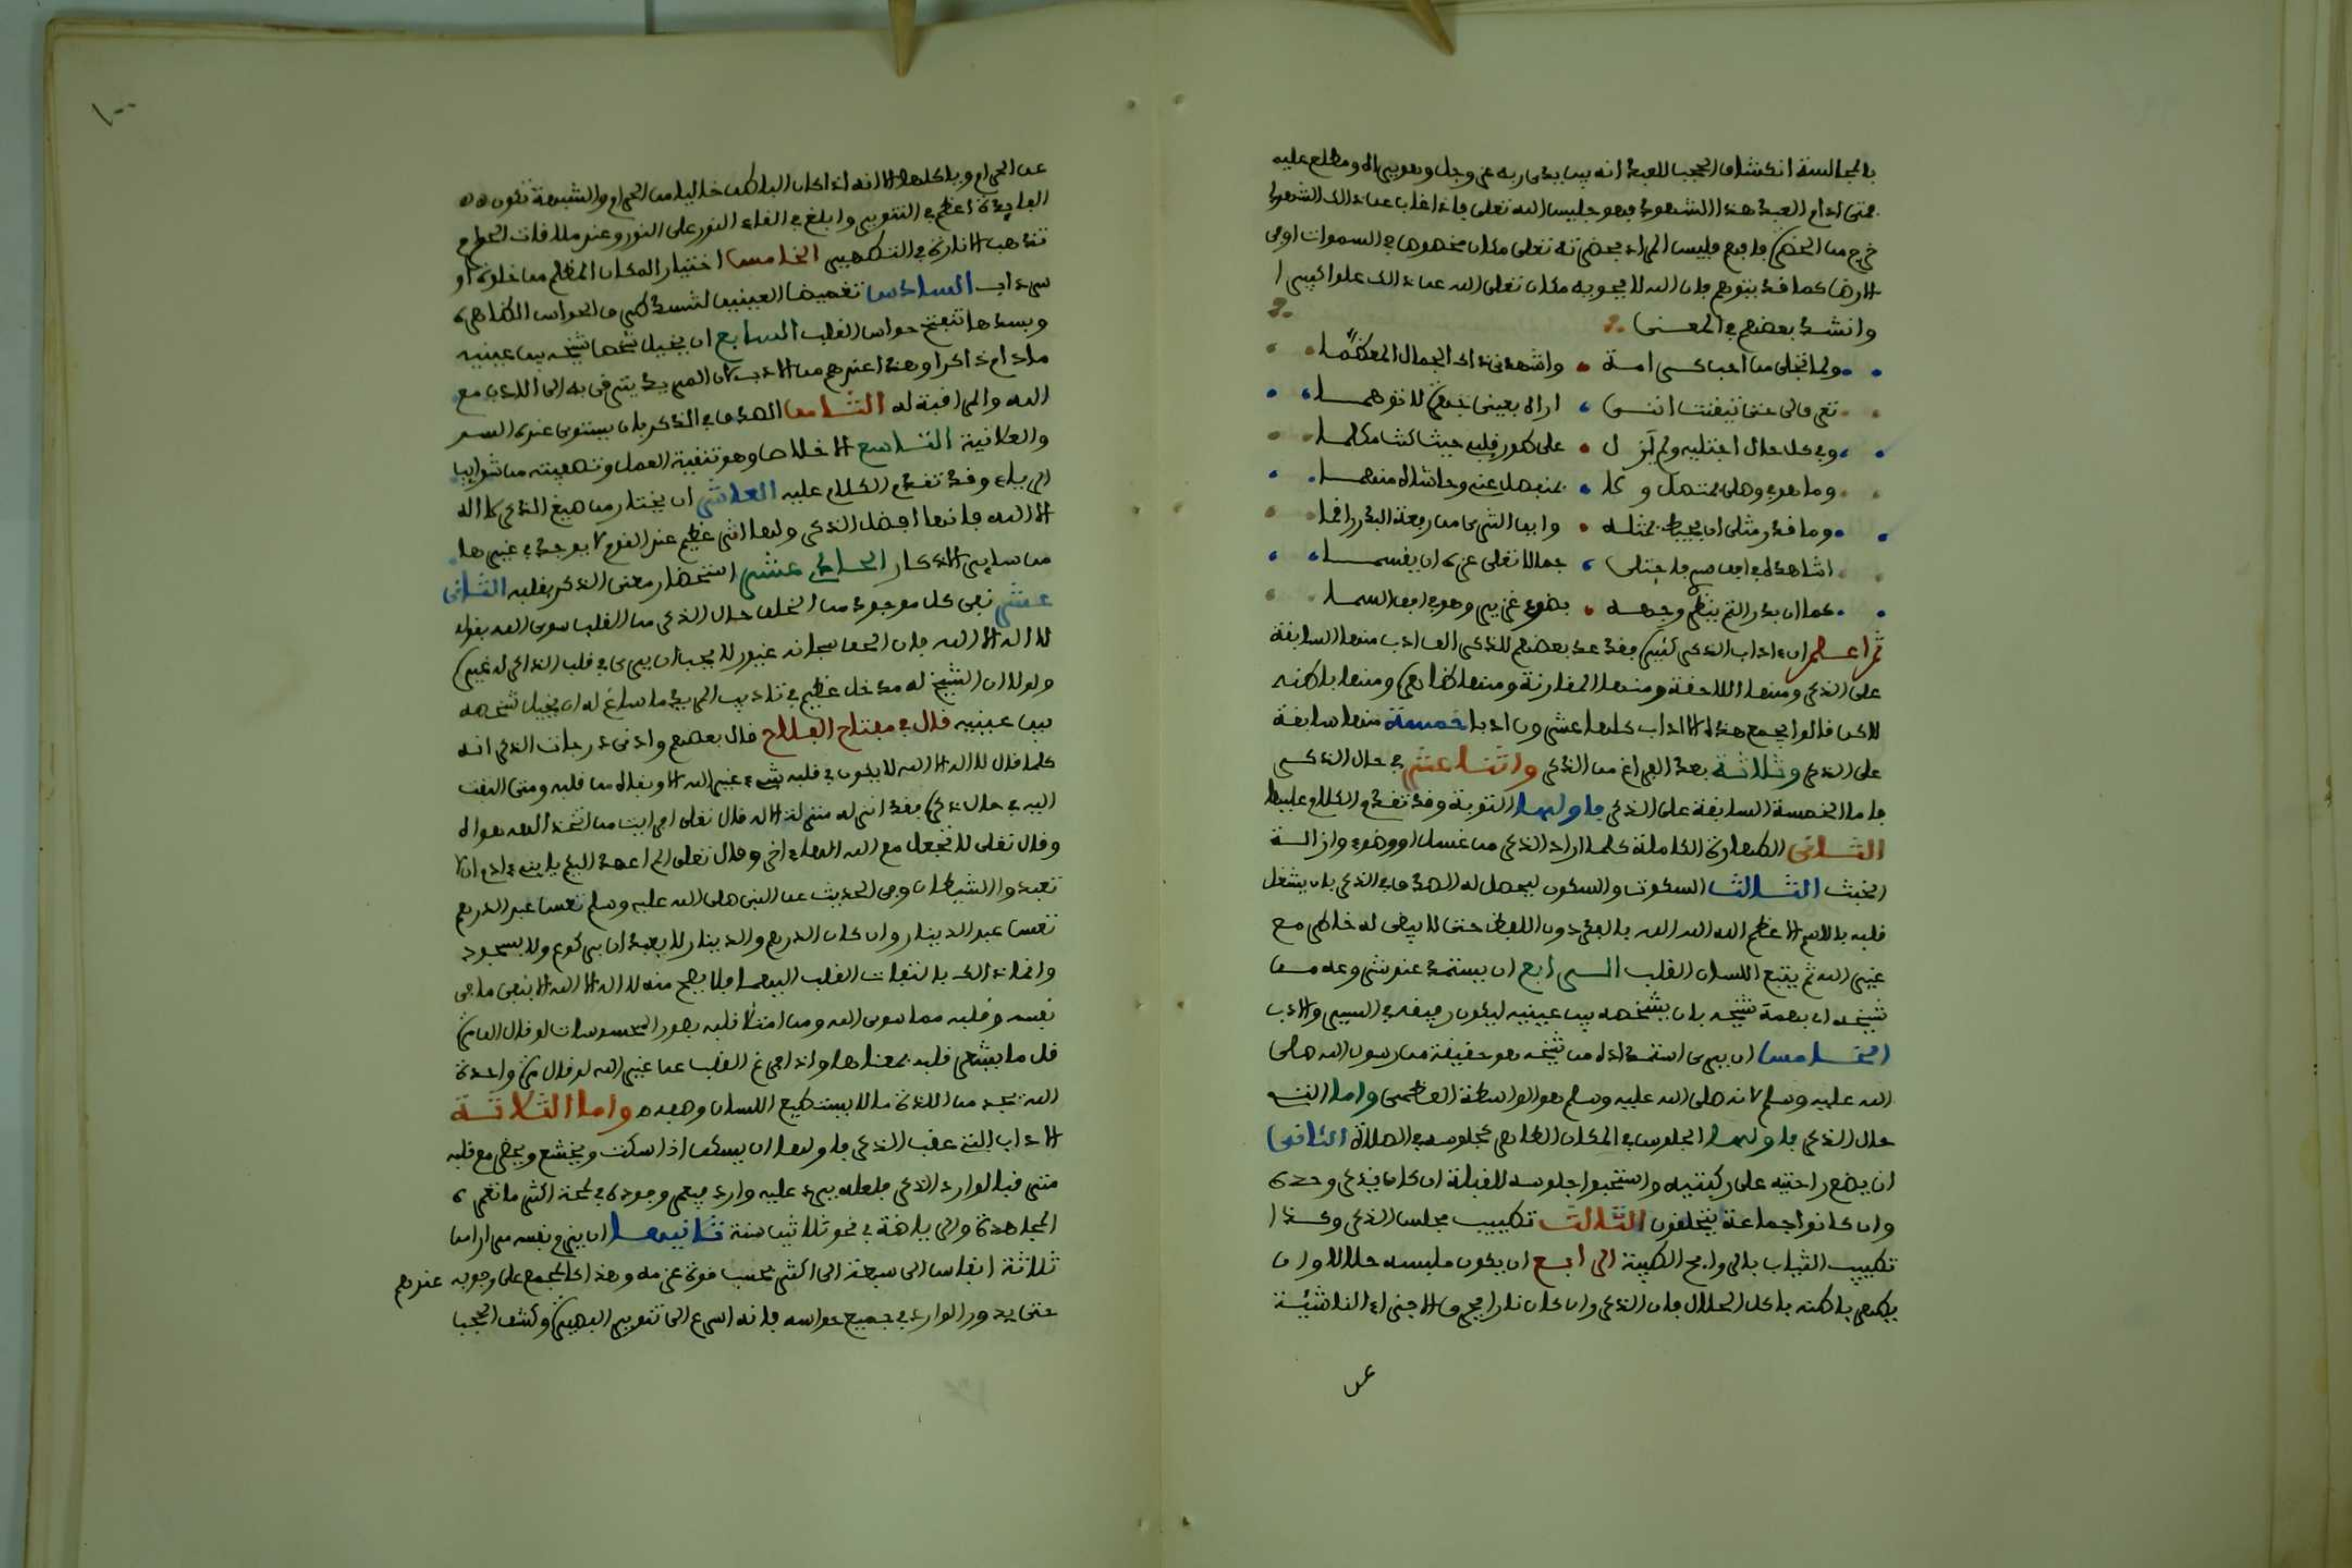 بالمجالسة انكشاف الحجب للعبد انه بين يدى ربه عز وجل وهو يراه ومطلع عليه
فمتى ادام العبد هذا الشهود فهو جليس الله تعلى فاذا غاب عن ذالك الشهود
خرج من الحضرة فافهم فليس المراد بحضرته تعلى مكان مخصوص في السموات او في
الارض كما قد يتوهم فان الله لا يحويه مكان تعلى الله عن ذالك علوا كبيرا
وانشد بعضهم في المعنى
ولما تجلى من احب كرامة واشهدنى ذاك الجمال المعظما
تعرف لى حتى تيقنت اننى اراه بعينى جهرة لا توهما
وفى كل حال اجتليه ولم يزل على طور قلبى حيث كنت مكلما
وما هو فى وصلى بمتصل ولا بمنفصل عنى وحاشاه منهما
وما قدر مثلى ان يحيط بمثله واين الثرى من رفعة البدر انما
اشاهده فى صفو سرى فاجتلى جمالا تعلى عزة ان يقسما
كما ان بدر التم ينظر وجهه بضوء غدير وهو فى افق السما
ثم اعلم ان ءاداب الذكر كثيرة فقد عد بعضهم للذكر الف ادب منها السابقة
على الذكر ومنها اللاحقة ومنها المقارنة ومنها ظاهرة ومنها باطنة
لاكن قالوا يجمع هذه الاداب كلها عشرون ادبا خمسة منها سابقة
على الذكر وثلاثة بعد الفراغ من الذكر واثنا عشر في حال الذكر
فاما الخمسة السابقة على الذكر فاولها التوبة وقد تقدم الكلام عليها
الثانى الطهارة الكاملة كلما اراد الذكر من غسل او وضوء وازالة
الخبث الثالث السكوت والسكون ليحصل له الصدق في الذكر بان يشغل
قلبه بالاسم الاعظم الله الله الله بالفكر دون اللفظ حتى لا يبقى له خاطر مع
غير الله ثم يتبع اللسان القلب الرابع ان يستمد عند شروعه من
شيخه اى بهمة شيخه بان يشخصه بين عينيه ليكون رفيقه في السير والادب
الخامس ان يرى استمداده من شيخه هو حقيقة من رسول الله صلى
الله عليه وسلم لانه صلى الله عليه وسلم هو الواسطة العظمى واما التى
حال الذكر فاولها الجلوس في المكان الطاهر كجلوسه في الصلاة الثانى
ان يضع راحتيه على ركبتيه واستحبوا جلوسه للقبلة ان كان يذكر وحده
وان كانوا جماعة يتحلقون الثالث تطييب مجلس الذكر وكذا
تطييب الثياب بالروايح الطيبة الرابع ان يكون ملبسه حلالا وان
يطهر باطنه باكل الحلال فان الذكر وان كان نارا يحرق الاجزاء الناشئة
عن
١٠٠
عن الحرام وباكلها الا انه اذا كان الباطن خاليا من الحرام والشبهة تكون
الفايدة اعظم في التنوير وابلغ في القاء النور على النور وعند ملاقات الحرام
تذهب الانارة في التطهير الخامس اختيار المكان المظلم من خلوة او
سرداب السادس تغميض العينين لتسد طرق الحواس الظاهرة
وبسدها تنفتح حواس القلب السابع ان يخيل شخص شيخه بين عينيه
مادام ذاكرا وهذا عندهم من الادب لان المريد يترقى به الى الادب مع
الله والمراقبة له الثامن الصدق في الذكر بان يستوى عنده السر
والعلانية التاسع الاخلاص وهو تنقية العمل وتصفيته من شوايب
الرياء وقد تقدم الكلام عليه العاشر ان يختار من صيغ الذكر لا اله
الا الله فانها افضل الذكر ولها اثر عظيم عند القوم لا يوجد في غيرها
من ساير الاذكار الحادى عشر استحضار معنى الذكر بقلبه الثانى
عشر نفى كل موجود من الخلق حال الذكر من القلب سوى الله بقوله
لا اله الا الله فان الحق سبحانه غيور لا يحب ان يرى في قلب الذاكر له غيره
ولولا ان الشيخ له مدخل عظيم في تاديب المريد ما ساغ له ان يخيل شخصه
بين عينيه قال في مفتاح الفلاح قال بعضهم وادنى درجات الذكر انه
كلما قال لا اله الا الله لا يكون في قلبه شىء غير الله الا ونفاه من قلبه ومتى التفت
اليه في حال ذكره فقد انزله منزلة الاله قال تعلى افرايت من اتخذ الهه هواه
وقال تعلى لا تجعل مع الله الها ءاخر وقال تعلى الم اعهد اليكم يا بنى ءادم ان لا
تعبدوا الشيطان وفى الحديث عن النبى صلى الله عليه وسلم تعس عبد الدرهم
تعس عبد الدينار وان كان الدرهم والدينار لا يعبدان بركوع ولا بسجود
وانما ذالك بالتفات القلب اليهما فلا يصح منه لا اله الا الله الا بنفى ما فى
نفسه وقلبه مما سوى الله ومن امتلا قلبه بصور المحسوسات لو قال الف مرة
قل ما يشعر قلبه بمعناها واذا فرغ القلب عن غير الله لو قال مرة واحدة
الله يجد من اللذة ما لا يستطيع اللسان وصفه واما الثلاثة
الاداب التى عقب الذكر فاولها ان يسكن اذا سكت ويخشع ويحضر مع قلبه
مترقبا لوارد الذكر فلعله يرد عليه وارد فيعمر وجوده في لمحة اكثر ما تعمره
المجاهدة والرياضة في نحو ثلاثين سنة ثانيها ان يزم نفسه مرارا من
ثلاثة انفاس الى سبعة الى اكثر بحسب قوة عزمه وهذا كالمجمع على وجوبه عندهم
حتى يدور الوارد في جميع حواسه فانه اسرع الى تنوير البصيرة وكشف الحجب